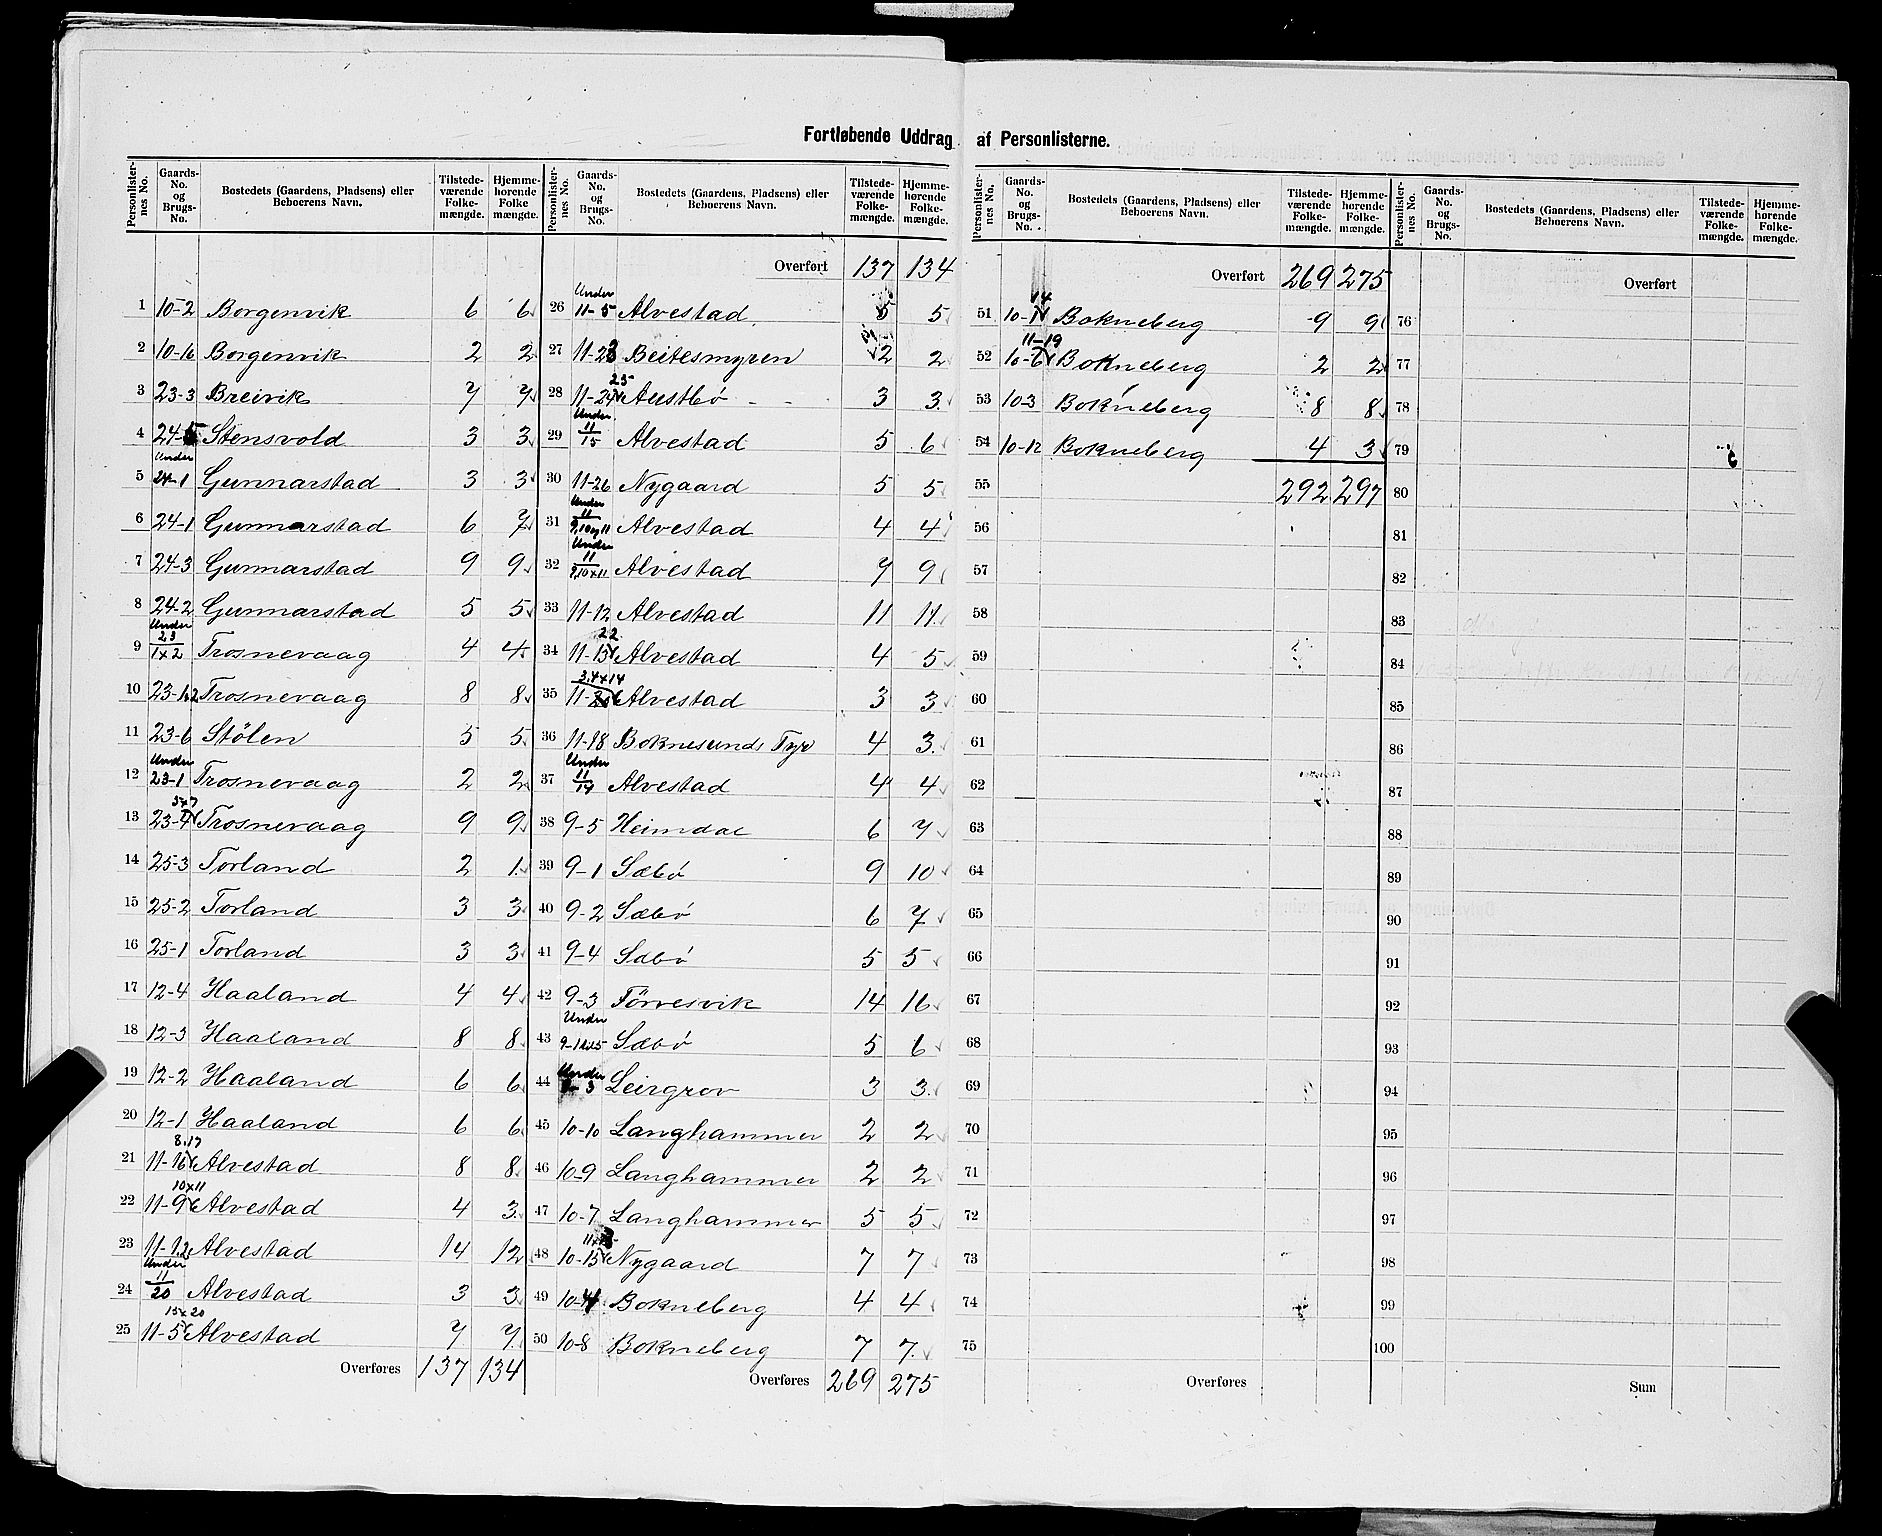 Fortløbende Uddrag af Personlisterne.
Personlister-nes No. Gaards-No. og Brugs-No. Bostedets (Gaardens, Pladsens) eller Beboerens Navn. Tilstede-værende Folke-mængde. Hjemme-hørende Folke mængde.
1 10-2 Borgenvik 6 6
2 10-16 Borgenvik 2 2
3 23-3 Breivik 7 7
4 24-5 Stensvold 3 3
5 Under 24-1 Gunnarstad 3 3
6 24-1 Gunnarstad 6 7
7 24-3 Gunnarstad 9 9
8 24-2 Gunnarstad 5 5
9 Under 23/1x2 Trosnevaag 4 4
10 23-1,2 Trosnevaag 8 8
11 23-6 Stølen 5 5
12 Under 23-1 Trosnevaag 2 2
13 23-4 5x7 Trosnevaag 9 9
14 25-3 Torland 2 1
15 25-2 Torland 3 3
16 25-1 Torland 3 3
17 12-4 Haaland 4 4
18 12-3 Haaland 8 8
19 12-2 Haaland 6 6
20 12-1 Haaland 6 6
21 11-16 8,17 Alvestad 8 8
22 11-9 10x11 Alvestad 4 3
23 11-1,2 Alvestad 14 12
24 Under 11/20 Alvestad 3 3
25 11-5 15x20 Alvestad 7 7
Overføres 137 134
Personlister-nes No. Gaards-No. og Brugs-No. Bostedets (Gaardens, Pladsens) eller Beboerens Navn. Tilstede-værende Folke-mængde. Hjemme-hørende Folke-mængde.
Overført 137 134
26 Under 11-5 Alvestad 5 5
27 11-23 Beitesmyren 2 2
28 11-24 25 Austbø - - 3 3
29 Under 11/15 Alvestad 5 6
30 11-26 Nygaard 5 5
31 Under 11/9,10og11 Alvestad 4 4
32 Under 11/9,10x11 Alvestad 7 9
33 11-12 Alvestad 11 11
34 11-13 22 Alvestad 4 5
35 3,4x14 Alvestad 3 3
36 11-18 Boknesunds Fyr 4 3
37 Under 11/14 Alvestad 4 4
38 9-5 Heimdal 6 7
39 9-1 Sæbø 9 10
40 9-2 Sæbø 6 7
41 9-4 Sæbø 5 5
42 9-3 Törresvik 14 16
43 Under Sæbø 5 6
44 Under 9-3 Leirgrov 3 3
45 10-10 Langhammer 2 2
46 10-9 Langhammer 2 2
47 10-7 Langhammer 5 5
48 10-15 Nygaard 7 7
49 10-4 Bokneberg 4 4
50 10-8 Bokneberg 7 7
Overføres 269 275
Personlister-nes No. Gaards-No. og Brugs-No. Bostedets (Gaardens, Pladsens) eller Beboerens Navn. Tilstede-værende Folke-mængde. Hjemme-hørende Folke-mængde.
Overført 269 275
51 10-1 14 Bokneberg 9 9
52 10-6 11-19 Bokneberg 2 2
53 10-3 Bokneberg 8 8
54 10-12 Bokneberg 4 3
55 292 297
56
57
58
59
60
61
62
63
64
65
66
67
68
69
70
71
72
73
74
75
Overføres
Personlister-nes No. Gaards-No. og Brugs-No. Bostedets (Gaardens, Pladsens) eller Beboerens Navn. Tilstede-værende Folke-mængde. Hjemme-hørende Folke-mængde.
Overført
76
77
78
79
80
81
82
83
84
85
86
87
88
89
90
91
92
93
94
95
96
97
98
99
100
Sum